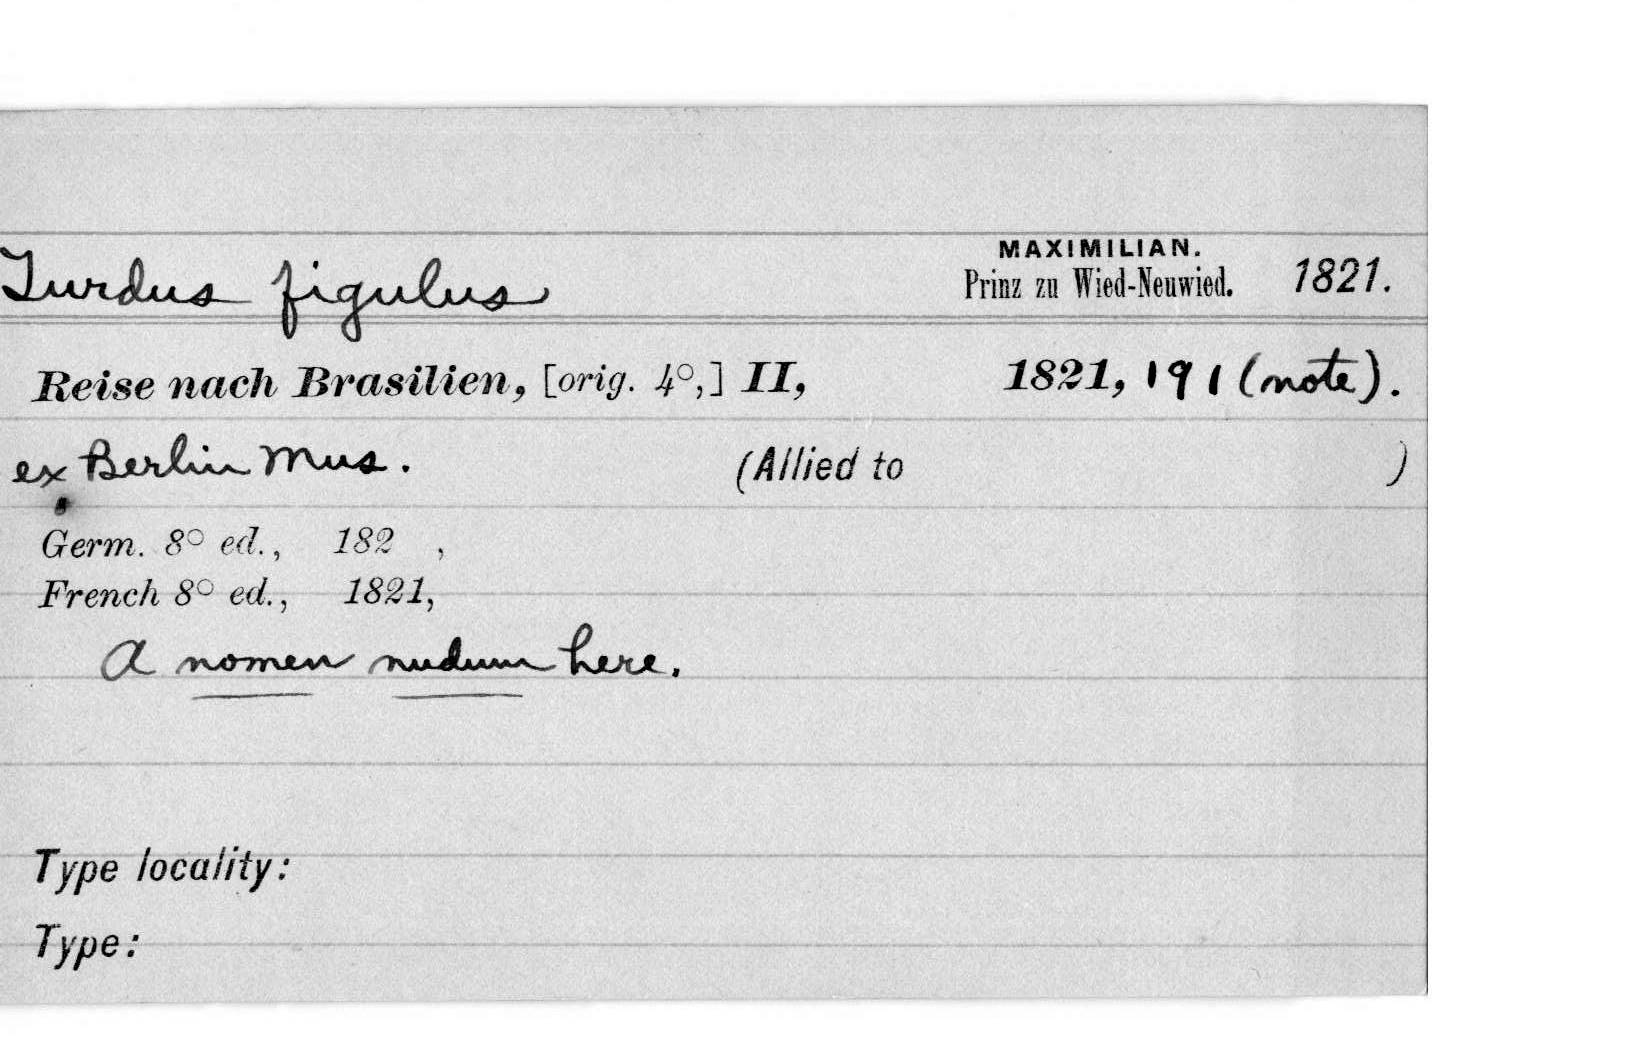 Turdus figulus MAXIMILIAN. Prinz zu Wied-Neuwied. 1821.
Reise nach Brasilien, [orig. 4°,] II, 1821, 191 (note).
ex Berlin Mus. (Allied to )
Germ. 8° ed., 182 ,
French 8° ed., 1821,
A nomen nudum here.
Type locality:
Type: